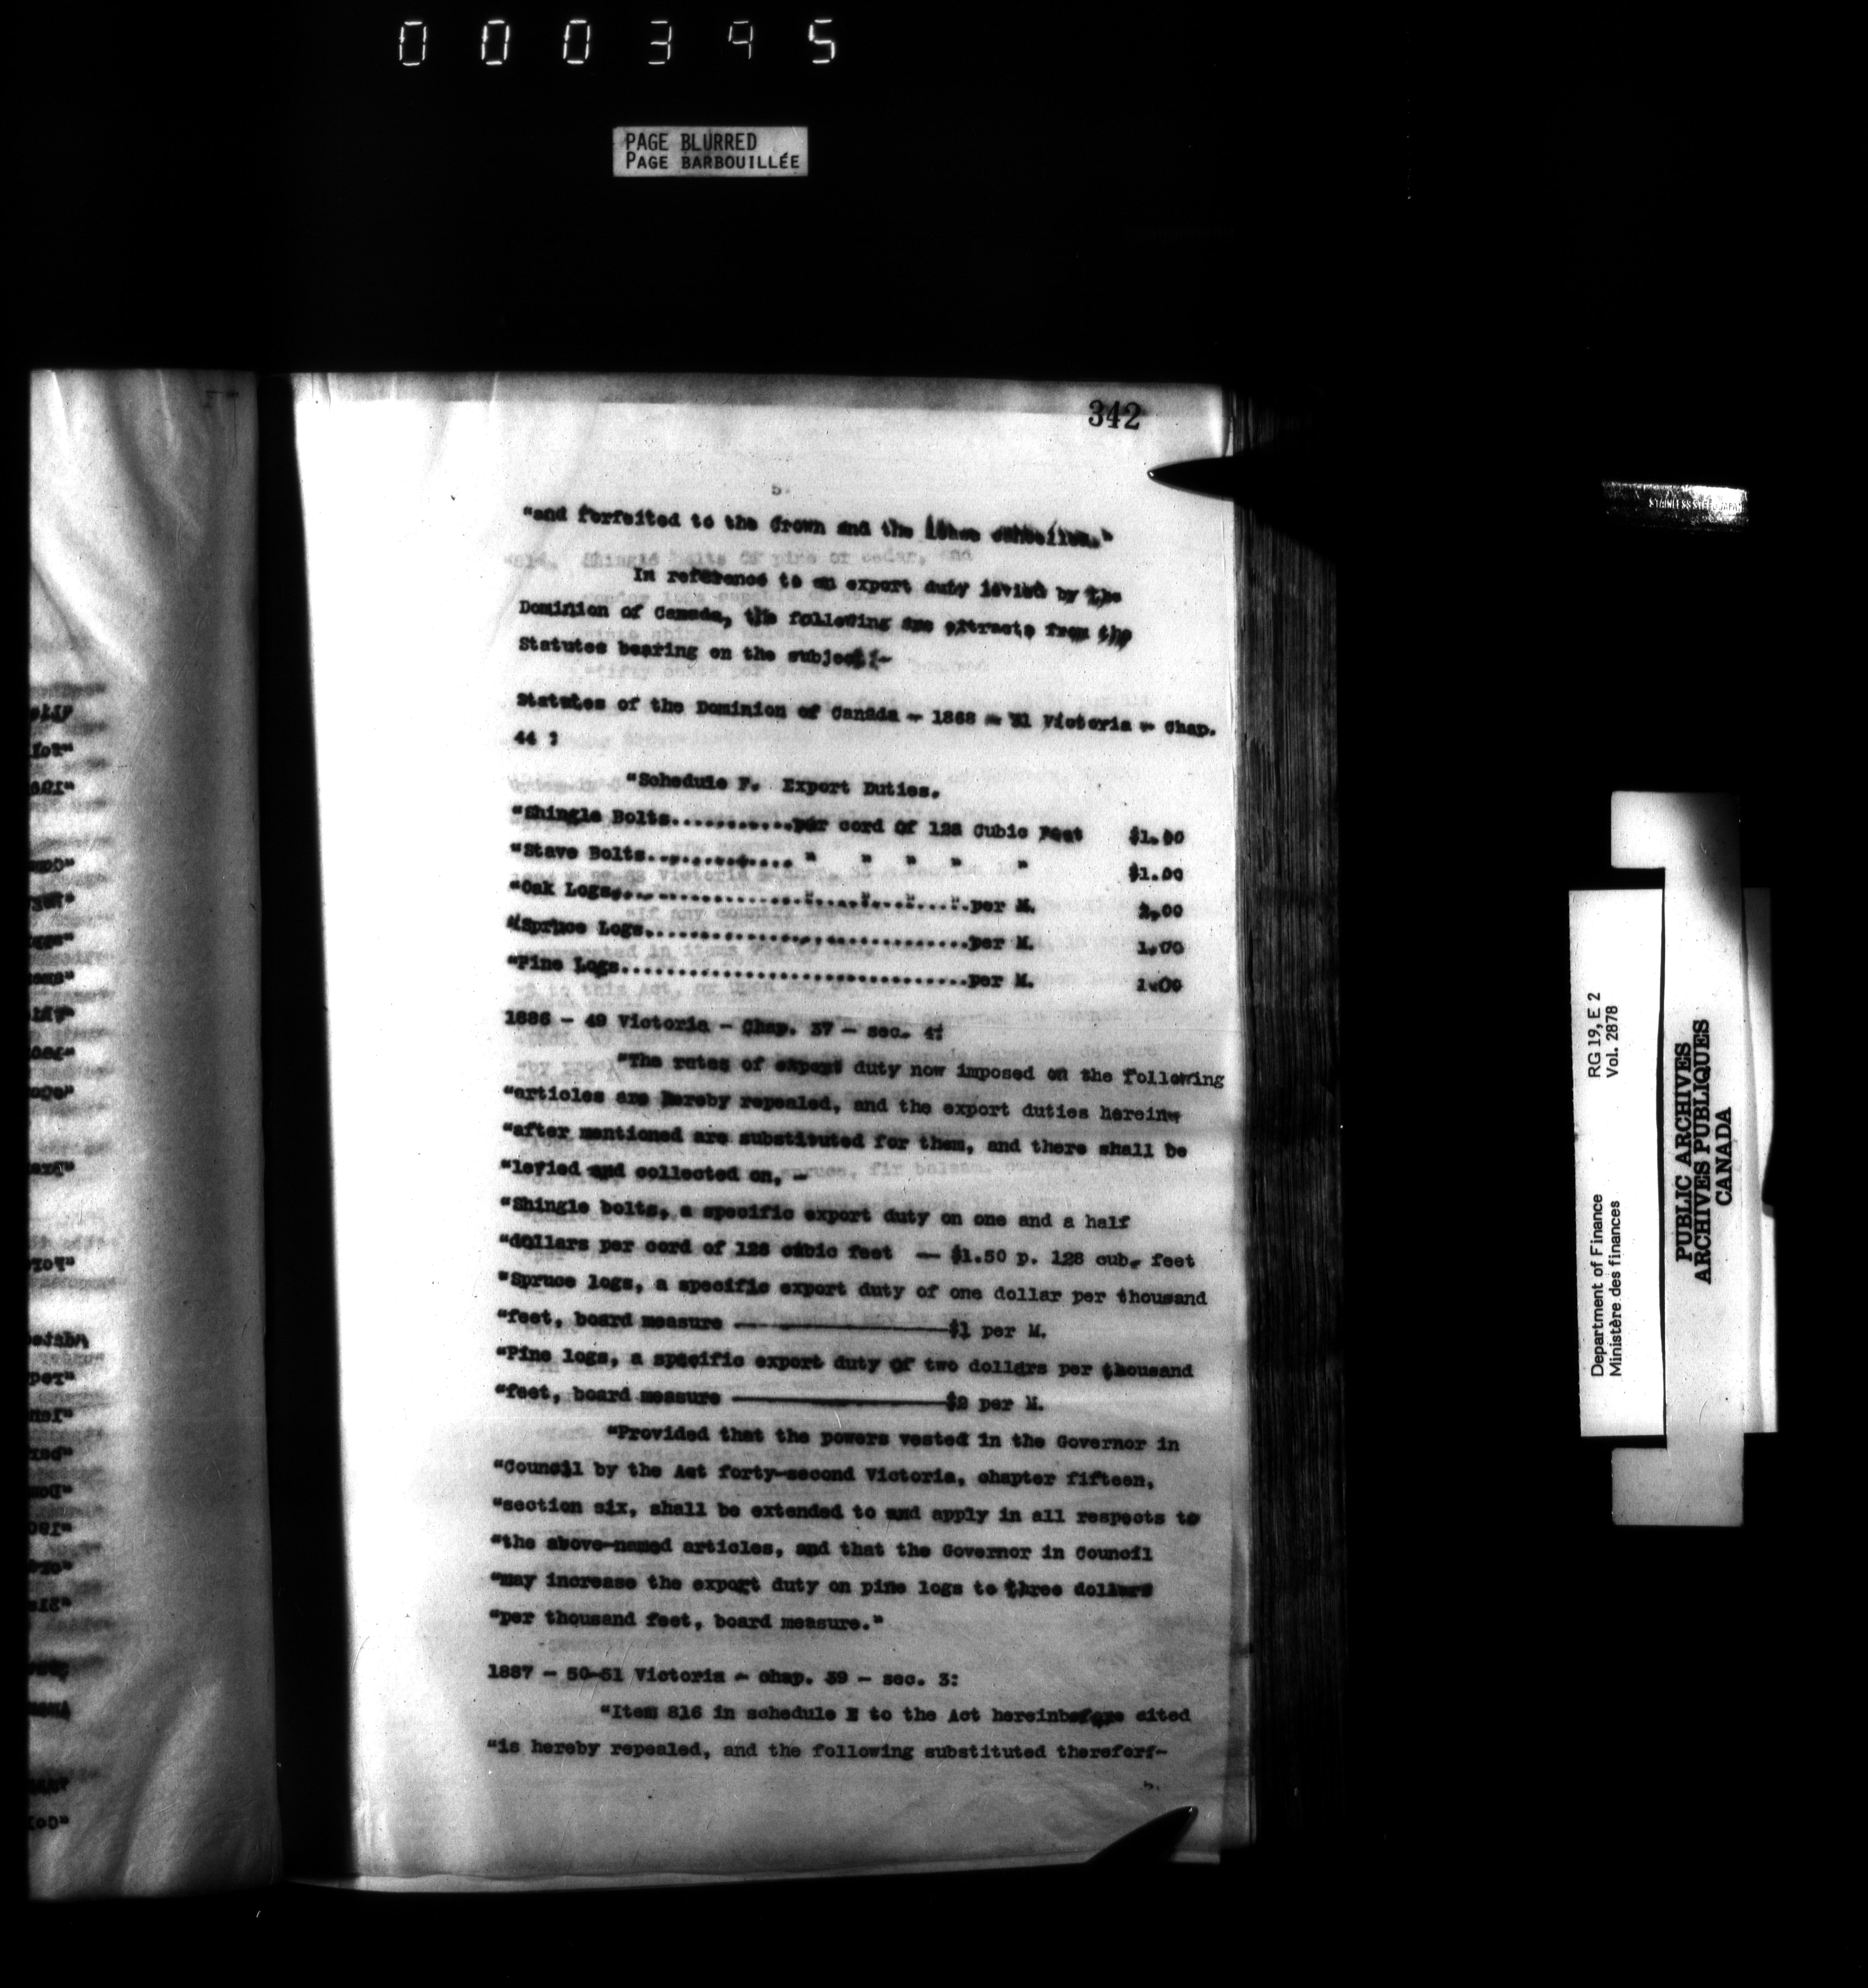 000395
PAGE BLURRED
PAGE BARBOUILLÉE
342
5.
"and forfeited to the Crown and the
In reference to an export duty levied by the
Dominion of Canada, the following are extracts from the
Statutes bearing on the subject:-
Statutes of the Dominion of Canada - 1868 - 31 Victoria - Chap.
44 :
"Schedule F. Export Duties.
"Shingle Bolts............per cord of 128 Cubic Feet $1.00
"Stave Bolts.............. " " " " " $1.00
"Oak Logs.................."....."...."....".per M. 2.00
"Spruce Logs................................per M. 1.00
"Pine Logs..................................per M. 1.00
1886 - 49 Victoria - Chap. 37 - sec. 4:
"The rates of export duty now imposed on the following
"articles are hereby repealed, and the export duties herein-
"after mentioned are substituted for them, and there shall be
"levied and collected on, -
"Shingle bolts, a specific export duty on one and a half
"dollars per cord of 128 cubic feet — $1.50 p. 128 cub. feet
"Spruce logs, a specific export duty of one dollar per thousand
"feet, board measure ————————$1 per M.
"Pine logs, a specific export duty of two dollars per thousand
"feet, board measure ————————$2 per M.
"Provided that the powers vested in the Governor in
"Council by the Act forty-second Victoria, chapter fifteen,
"section six, shall be extended to and apply in all respects to
"the above-named articles, and that the Governor in Council
"may increase the export duty on pine logs to three dollars
"per thousand feet, board measure."
1887 - 50-51 Victoria - chap. 39 - sec. 3:
"Item 816 in schedule E to the Act hereinbefore cited
"is hereby repealed, and the following substituted therefor:-
5.
STAINLESS STEEL JAPAN
Department of Finance RG 19, E 2
Ministère des finances Vol. 2878
PUBLIC ARCHIVES
ARCHIVES PUBLIQUES
CANADA